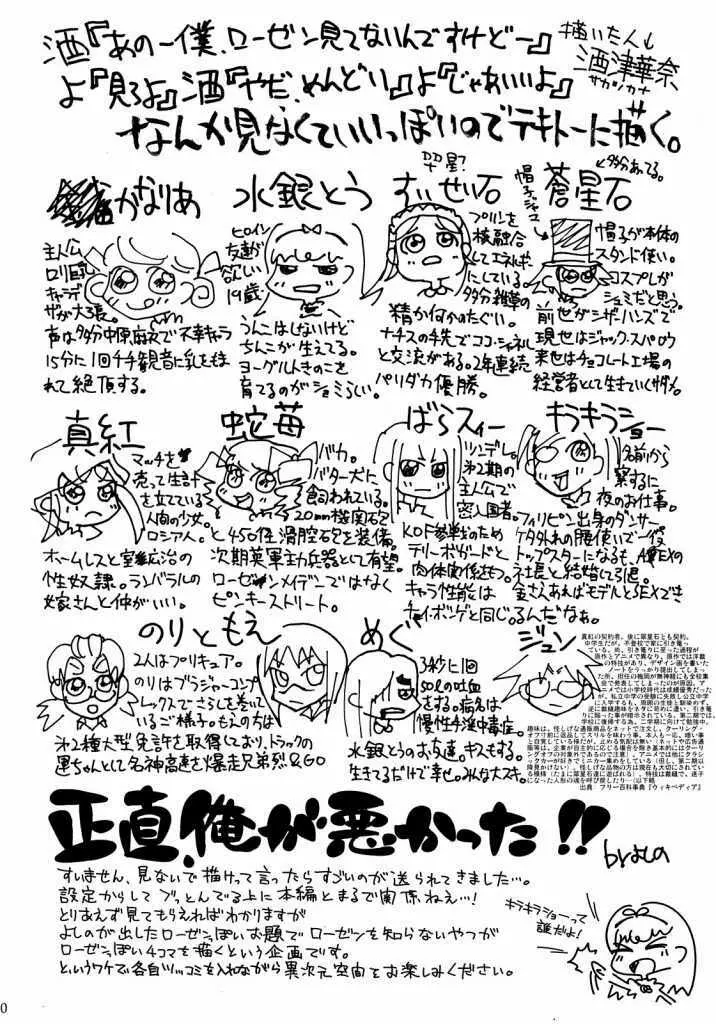 酒『あのー僕、ローゼン見てないんですけどー』
よ『見ろよ』酒『やだ、めんどい』よ『じゃあいいよ』
なんか見なくていいっぽいのでテキトーに描く。
描いた人↓
酒津華奈
サカヅカナ
かなりあ
主人公
ロリ巨乳
キャラデ
ザが大張。
声は多分中原麻衣で不幸キャラ
15分に1回チチ観音に乳をも
まれて絶頂する。
水銀とう
ヒロイン
友達が
欲しい
19歳
うんこはしないけど
ちんこが生えてる。
ヨーグルトきのこを
育てるのがシュミらしい。
翠星?
すいせい石
プリンを
核融合
してエネルギー
にしている。
多分雑草の
精か何かのたぐい。
ナチスの手先でココ・シャネル
と交流がある。2年連続
パリダカ優勝。
←多分あってる。
蒼星石
帽子が本体の
スタンド使い。
コスプレが
シュミだと思う。
前世がシザーハンズで
現世はジャック・スパロウ
来世はチョコレート工場の
経営者として生きていくサダメ。
真紅
マッチを
売って生計
を立てている
人間の少女。
ロシア人。
ホームレスと室広治の
性奴隷。ランバラルの
嫁さんと仲がいい。
蛇苺
バカ。
バターズに
飼われている。
20mm機関砲
と450径滑腔砲を装備。
次期英軍主力兵器として有望。
ローゼンメイデンではなく
ピンキーストリート。
ばらスィー
ツンデレ。
第2期の
主人公で
密入国者。
KOF参戦のため
テリーボガードと
肉体関係をもつ。
キャラ性能は
チョイ・ボンゲと同じ。
キラキラショー
名前から
察するに
夜のお仕事。
フィリピン出身のダンサー
ケタ外れの腰使いで一役
トップスターになるも、
社長と結婚して引退。
金さえあればモデルとSEXでき
るんだなぁ。
のりともえ
2人はプリキュア。
のりはブラジャーコンプ
レックスでさらしを巻いて
いるご様子。もえの方は
第2種大型免許を取得しており、トラックの
運ちゃんとして名神高速を爆走兄弟烈&GO
めぐ
3秒に1回
50ℓの吐血
をする。病名は
慢性手淫中毒症。
水銀とうのお友達。キスもする。
生きてるだけで幸せ。みんな大スキ。
ジュン
真紅の契約者。後に翠星石とも契約。
中学生だが、不登校で家に引き篭っ
ている。尚、引き篭りに至った過程が
原作とアニメで異なり、原作では洋裁
の特技があり、デザイン画を書いた
ノートをうっかり提出してしまっ
た所、担任の梅岡が無神経にも全校集
会で発表してしまったのが原因。ア
ニメでは小学校時代は成績優秀だった
が、私立中学の受験に失敗し公立中学
に入学するも、周囲の生徒と馴染めず、
出典:フリー百科事典『ウィキペディア』
正直、俺が悪かった!!
byよしの
すいません、見ないで描けって言ったらすごいのが送られてきました…。
設定からしてブッとんでる上に本編とまるで関係ねえ…!
とりあえず見てもらえればわかりますが
よしのが出したローゼンっぽいお題でローゼンを知らないやつが
ローゼンっぽい4コマを描くという企画です。
というワケで各自ツッコミを入れながら異次元空間をお楽しみください。
キラキラショーって
誰だよ!
0